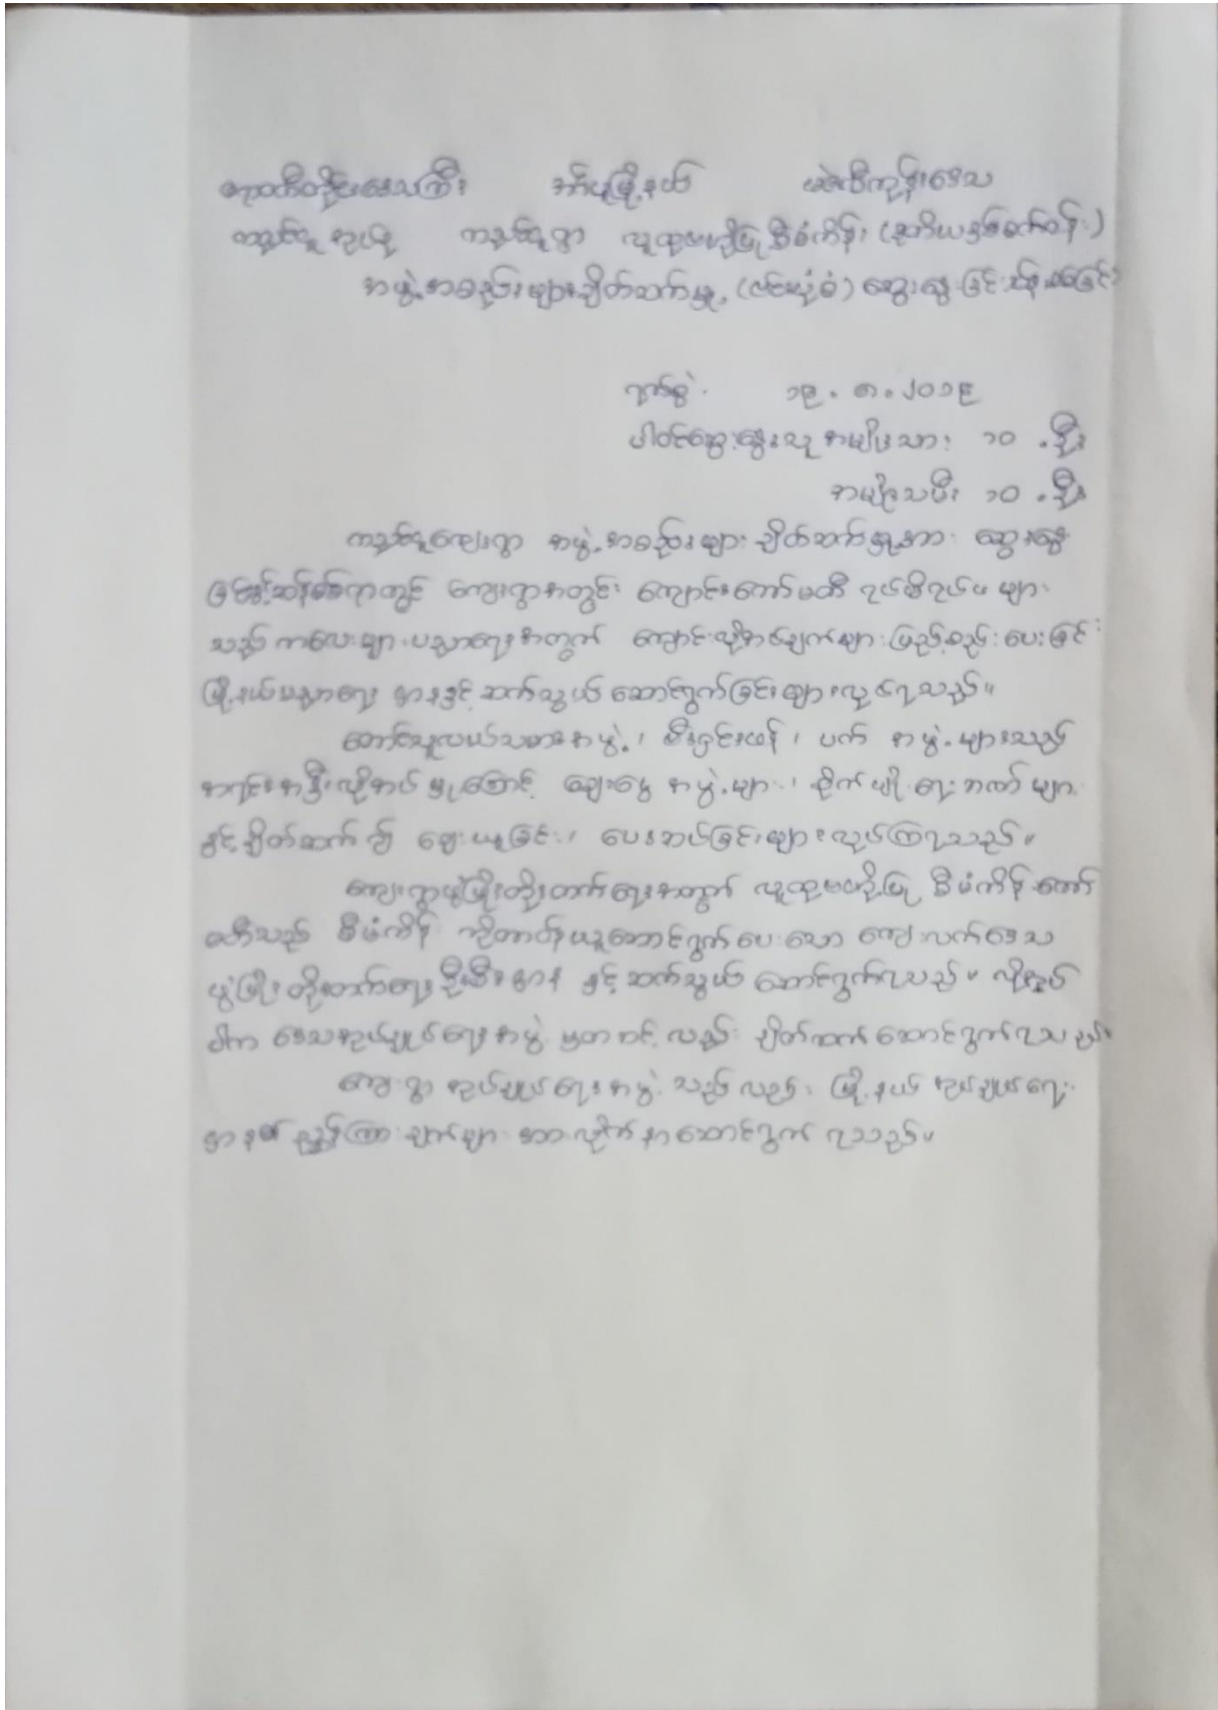 ဧရာဝတီတိုင်းဒေသကြီး ငပုတောမြို့နယ်
ကညင်သူ အုပ်စု ကညင်သူရွာ လူထုဗဟိုပြုစီမံကိန်း (ဒုတိယနှစ်စက်ဝန်း)
အဖွဲ့အစည်းများချိတ်ဆက်မှု (ဗင်းပုံစံ) ဆွေးနွေးခြင်း
ရက်စွဲ ၁၉.၈.၂၀၁၉
ပါဝင်ဆွေးနွေးသူ အမျိုးသား ၁၀ ဦး
အမျိုးသမီး ၁၀ ဦး
ကျေးရွာ အဖွဲ့အစည်းများ ချိတ်ဆက်မှုအား ဆွေးနွေး
ကျေးရွာအတွင်း ကျောင်းကော်မတီ ရပ်မိရပ်ဖများ
သည် ကလေးများပညာရေးအတွက် ကျောင်းလိုအပ်ချက်များ ဖြည့်စည်းပေးခြင်း
မြို့နယ်ပညာရေး ဌာနနှင့် ဆက်သွယ် ဆောင်ရွက်ခြင်းများလုပ်ရသည်။
တောင်သူလယ်သမားအဖွဲ့၊ မီးရှင်းဖန်၊ ပတ် အဖွဲ့များသည်
အရင်းအနှီးလိုအပ်မှုကြောင့် ချေးငွေ အဖွဲ့များ၊ စိုက်ပျိုးရေးဘဏ်များ
နှင့်ချိတ်ဆက်၍ ချေးယူခြင်း၊ ပေးဆပ်ခြင်းများ လုပ်ကြရသည်။
ကျေးရွာဖွံ့ဖြိုးတိုးတက်ရေးအတွက် လူထုဗဟိုပြု စီမံကိန်း ကော်
မတီသည် စီမံကိန်း ကိုတာဝန်ယူဆောင်ရွက်ပေးသော ကျေးလက်ဒေသ
ဖွံ့ဖြိုးတိုးတက်ရေးဦးစီးဌာန နှင့် ဆက်သွယ် ဆောင်ရွက်ရသည်။ လိုအပ်
ပါက ဒေသအုပ်ချုပ်ရေးအဖွဲ့ မှတဆင့် လည်း ချိတ်ဆက်ဆောင်ရွက်ရသည်။
ကျေးရွာ အုပ်ချုပ်ရေးအဖွဲ့ သည်လည်း မြို့နယ် အုပ်ချုပ်ရေး
ဌာန၏ ညွှန်ကြားချက်များ အား လိုက်နာဆောင်ရွက် ရသည်။